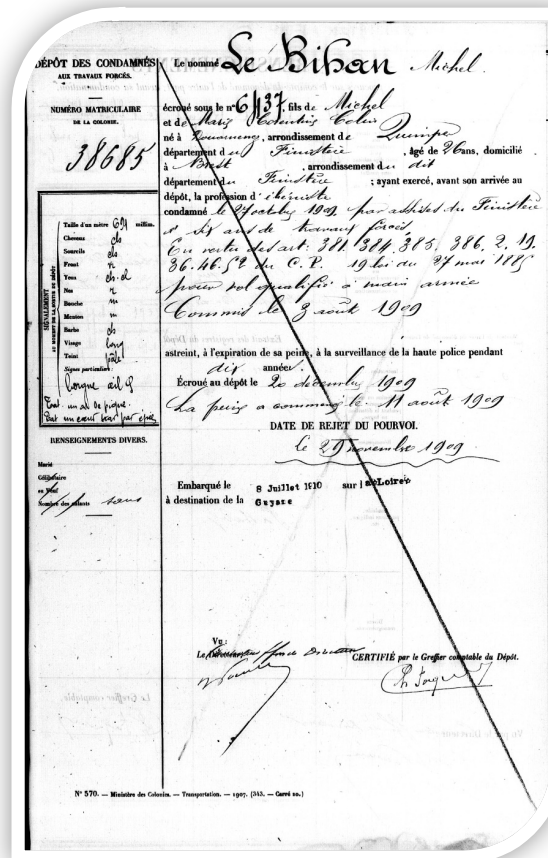 DÉPÔT DES CONDAMNÉS
AUX TRAVAUX FORCÉS.
NUMÉRO MATRICULAIRE
DE LA COLONIE.
38685
SIGNALEMENT
AU MOMENT DE LA SORTIE DU DÉPÔT
Taille d'un mètre 691 millim.
Cheveux ch
Sourcils ch
Front
Yeux ch. cl
Nez
Bouche m
Menton m
Barbe ch
Visage long
Teint pâle
Signes particuliers:
borgne œil G
Tat. un as de pique.
Tat un cœur
RENSEIGNEMENTS DIVERS.
Marié
Célibataire
ou Veuf
Nombre des enfants sans
Le nommé Le Bihan Michel.
écroué sous le n° 6437, fils de Michel
et de Marie Corentine
né à Douarnenez, arrondissement de Quimper
département du Finistère, âgé de 26 ans, domicilié
à Brest, arrondissement du dit
département du Finistère; ayant exercé, avant son arrivée au
dépôt, la profession d'ébéniste
condamné le 27 octobre 1909 par assises du Finistère
à six ans de travaux forcés
En vertu des art. 381. 384. 385. 386. 2. 19.
36. 46. 52 du C. P. 19 loi du 27 mai 1885
pour vol qualifié à main armée
Commis le 3 août 1909
astreint, à l'expiration de sa peine, à la surveillance de la haute police pendant
dix années.
Écroué au dépôt le 20 décembre 1909
La peine a commencé le 11 août 1909
DATE DE REJET DU POURVOI.
Le 29 novembre 1909
Embarqué le 8 Juillet 1910 sur la Loire
à destination de la Guyane
Vu:
Le Directeur
CERTIFIÉ par le Greffier comptable du Dépôt.
N° 570. — Ministère des Colonies. — Transportation. — 1907. (343. — Carré 20.)